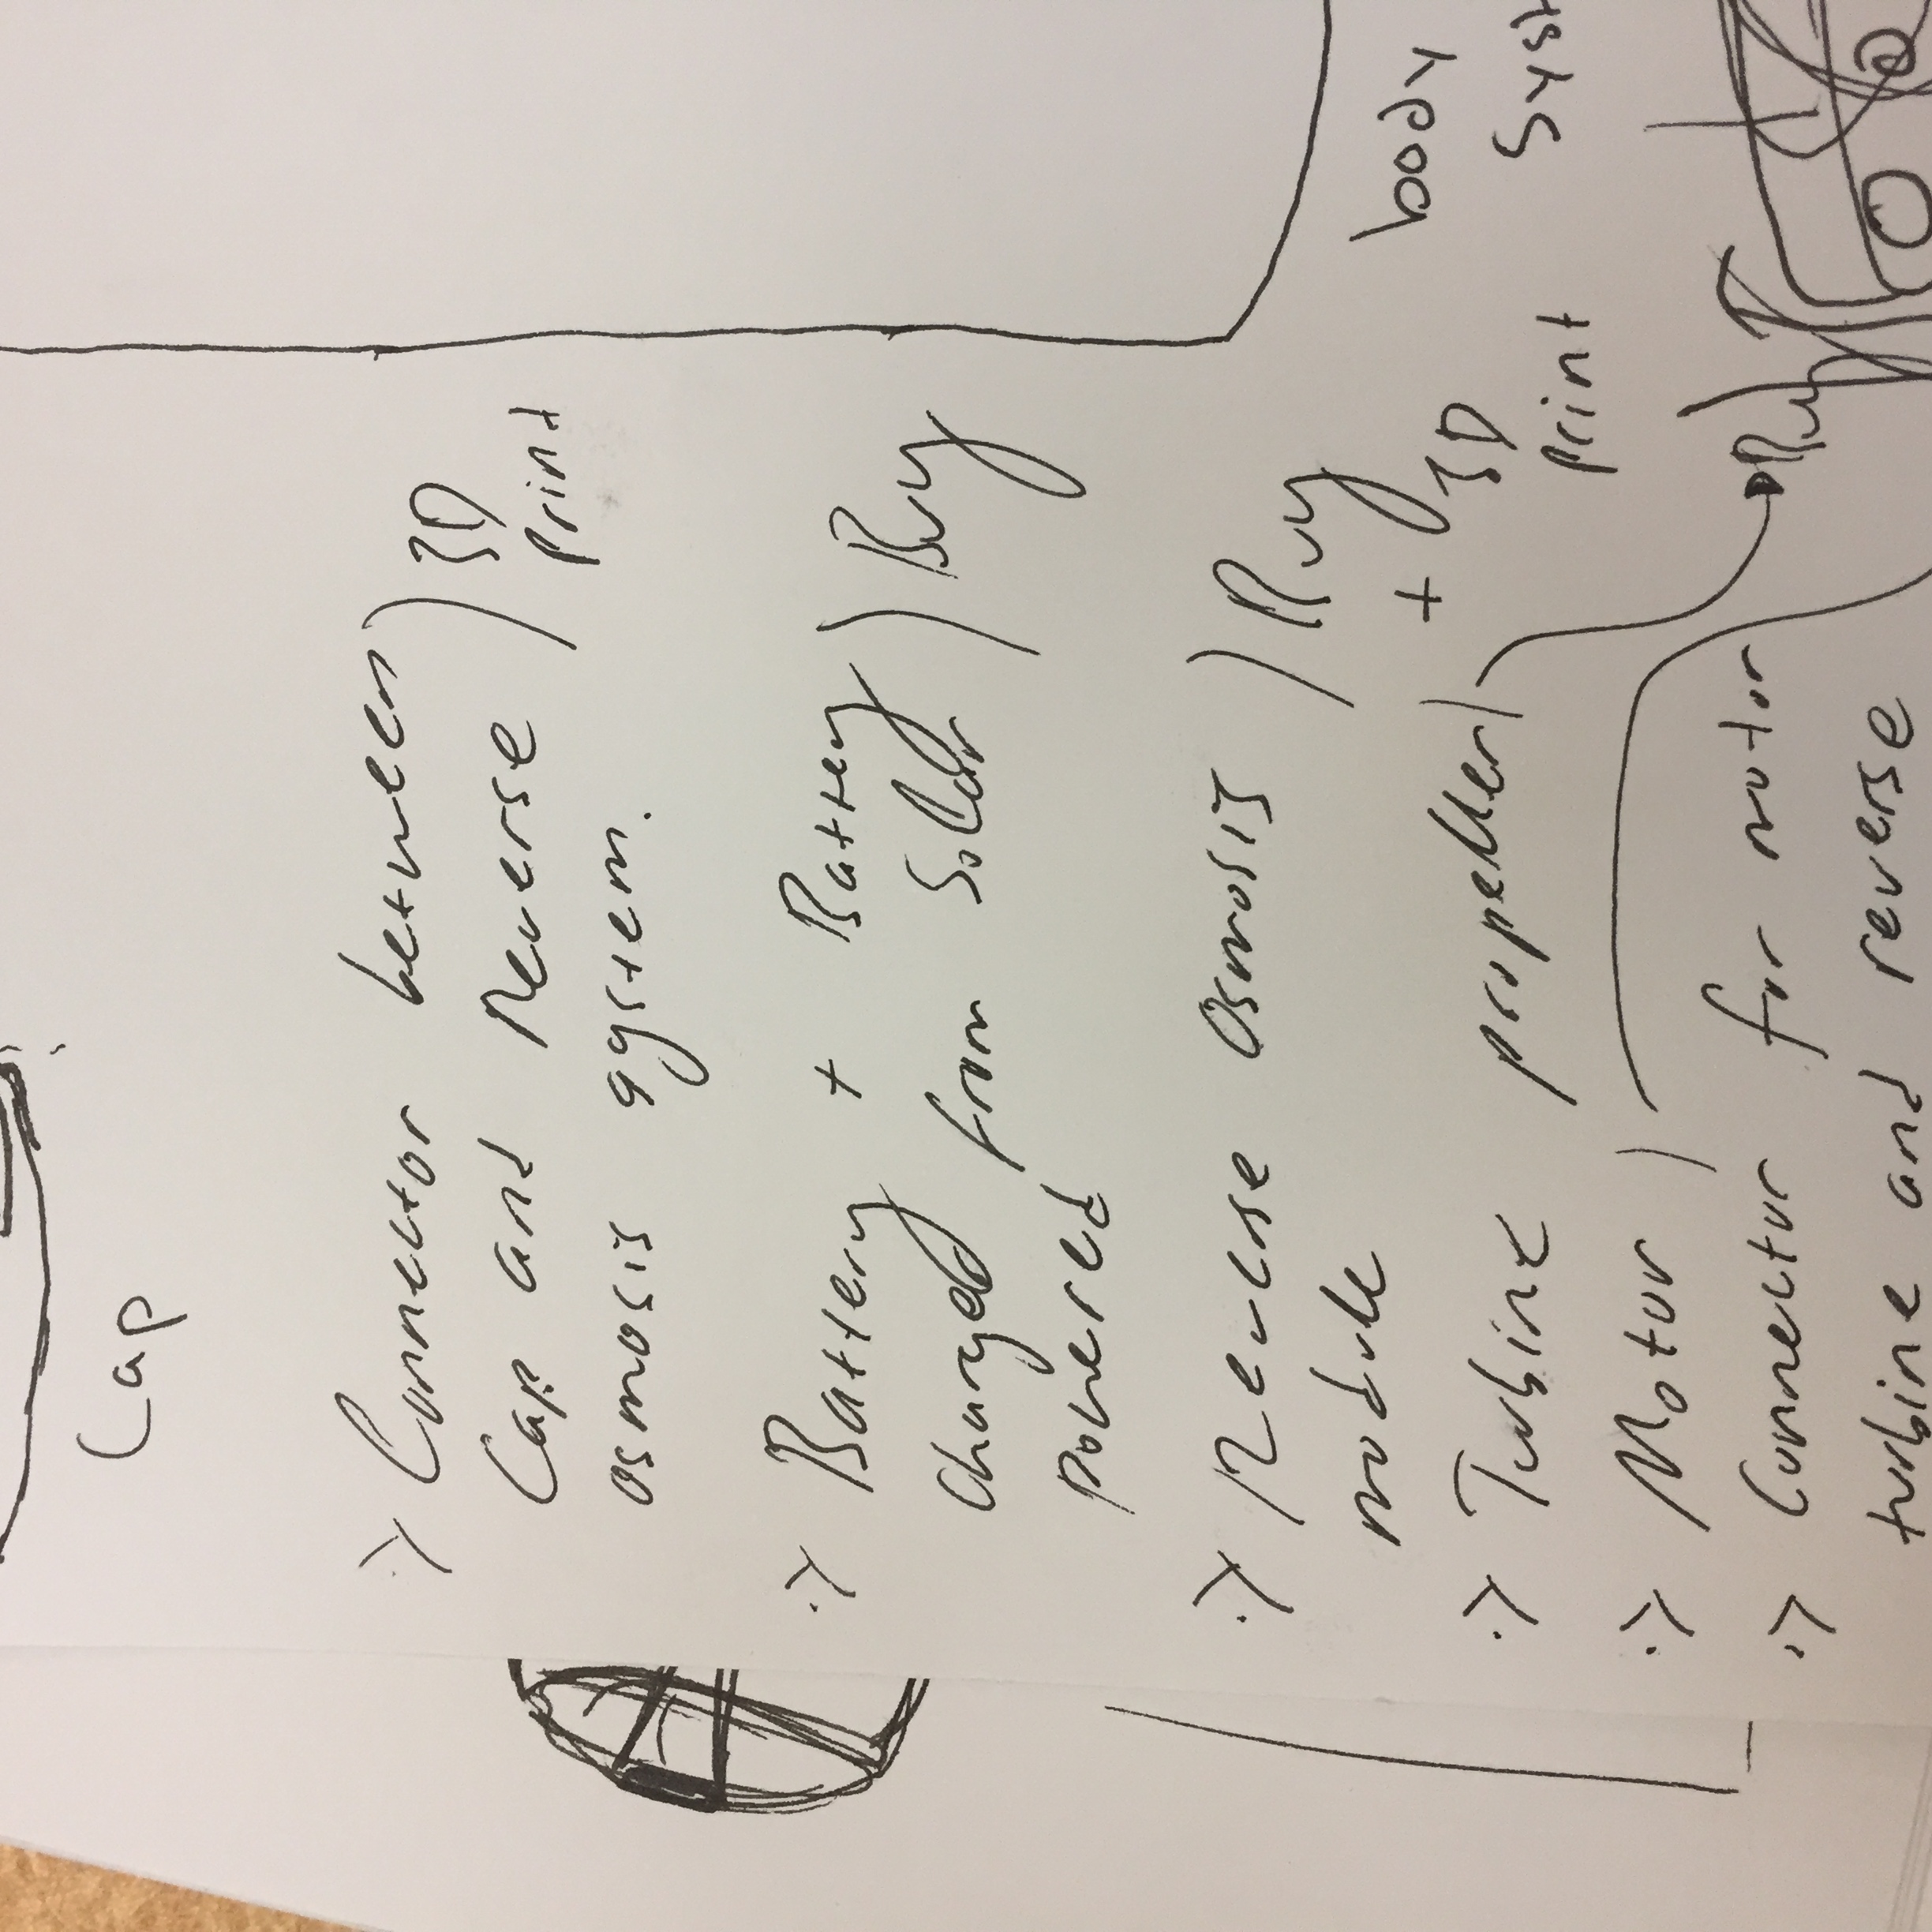 Cap
:> Connector between ) 3D
Cap and Reverse print
osmosis system.
:> Battery + Battey ) Buy
charged from Solar
powered
:> Reverse Osmosis ) Buy
module
+ 3D
print
:> Turbine propeller )
Buy
:> Motor )
:> Connector for motor
turbine and reverse
body
Syst